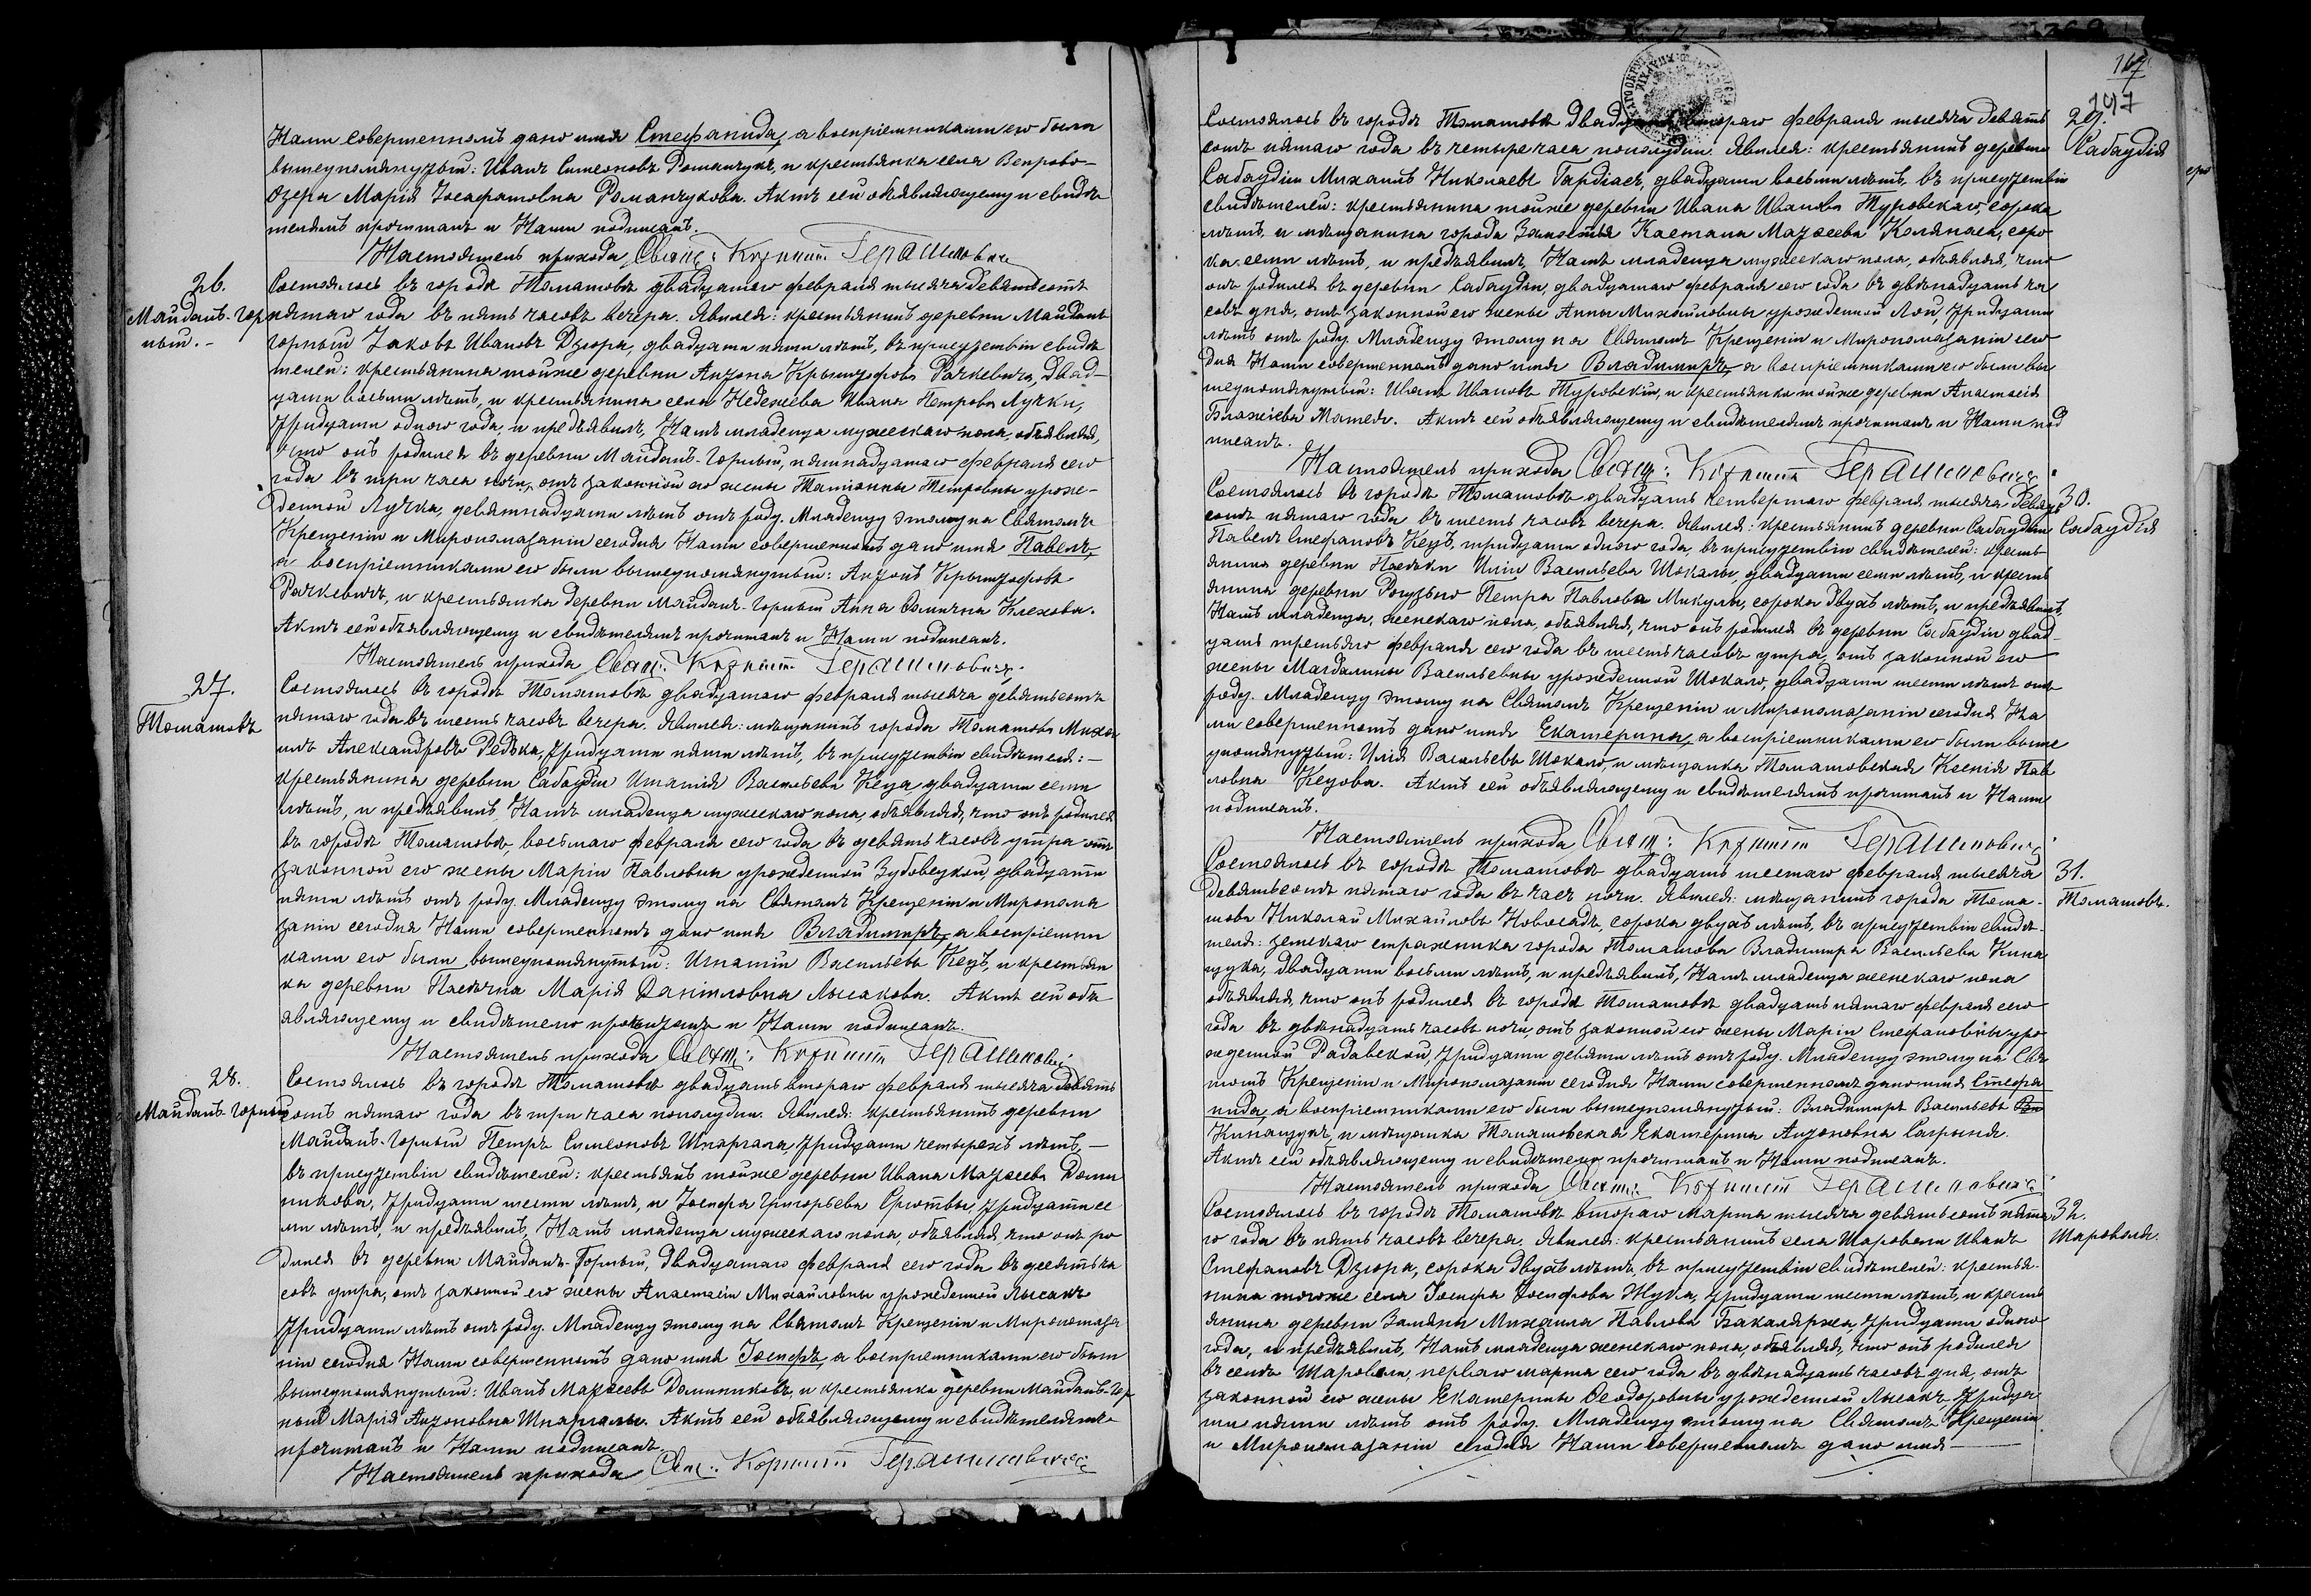 Нами совершенномъ дано имя Стефанида, а воспріемниками его были
вышеупомянутый: Иванъ Симеоновъ Романчукъ, и крестьянка села Вепрово-
Озера Марія Іосафатовна Романчукова. Актъ сей объявляющему и свидѣ-
телямъ прочитанъ и Нами подписанъ.
Настоятель прихода Свящ: Корнилій Герашимовичъ
26.
Майданъ-гор
ный.-
Состоялось въ городѣ Томашовѣ двадцатаго февраля тысяча девятьсотъ
пятаго года въ пять часовъ вечера. Явился: крестьянинъ деревни Майданъ
горный Іаковъ Ивановъ Дзюра, двадцати пяти лѣтъ, въ присутствіи свидѣ
телей: крестьянина тойже деревни Антона Крыштофова Рачкевича, двад-
цати восьми лѣтъ, и крестьянина села Недежева Ивана Петрова Лучки,
тридцати одного года, и предъявилъ Намъ младенца мужескаго пола, объявляя,
что онъ родился въ деревни Майданъ-Горный, пятнадцатаго февраля сего
года въ три часа ночи, отъ законной его жены Татіанны Петровны урож-
денной Лучка, девятнадцати лѣтъ отъ роду. Младенцу этому на Святомъ
Крещеніи и Миропомазаніи сегодня Нами совершенномъ дано имя Павелъ,
а воспріемниками его были вышеупомянутый: Антонъ Крыштофовъ
Рачкевичъ, и крестьянка деревни Майданъ-Горный Анна Ѳомична Клехова.
Актъ сей объявляющему и свидѣтелямъ прочитанъ и Нами подписанъ.
Настоятель прихода Свящ: Корнилій Герашимовичъ.
27.
Томашовъ
Состоялось въ городѣ Томашовѣ двадцатаго февраля тысяча девятьсотъ
пятаго года въ шесть часовъ вечера. Явился: мѣщанинъ города Томашова Миха
илъ Александровъ Редька, тридцати пяти лѣтъ, въ присутствіи свидѣтеля:-
крестьянина деревни Сабаудіи Игнатія Васильева Кеца двадцати семи
лѣтъ, и предъявилъ Намъ младенца мужескаго пола, объявляя, что онъ родился
въ городѣ Томашовѣ, восьмаго февраля сего года въ девять часовъ утра отъ
законной его жены Маріи Павловны урожденной Зубовецкой, двадцати
пяти лѣтъ отъ роду. Младенцу этому на Святомъ Крещеніи и Миропома
заніи сегодня Нами совершенномъ дано имя Владиміръ, а воспріемни
ками его были вышеупомянутый: Игнатій Васильевъ Кецъ, и крестьян
ка деревни Пасѣчна Марія Даніиловна Лысакова. Актъ сей объ
являющему и свидѣтелю прочитанъ и Нами подписанъ.
Настоятель прихода Свящ: Корнилій Герашимовичъ
28.
Майданъ-горный
Состоялось въ городѣ Томашовѣ двадцать втораго февраля тысяча девять
сотъ пятаго года въ три часа пополудни. Явился: крестьянинъ деревни
Майданъ-Горный Петръ Симеоновъ Шпаргала, тридцати четырехъ лѣтъ,-
въ присутствіи свидѣтелей: крестьянъ тойже деревни Ивана Матѳеева Доми
никова, тридцати шести лѣтъ, и Іосифа Григорьева Сроттвы, тридцати се
ми лѣтъ, и предъявилъ Намъ младенца мужескаго пола, объявляя, что онъ ро
дился въ деревни Майданъ-Горный, двадцатаго февраля сего года въ десять ча
совъ утра, отъ законной его жены Анастасіи Михайловны урожденной Лысакъ
тридцати лѣтъ отъ роду. Младенцу этому на Святомъ Крещеніи и Миропомаза
ніи сегодня Нами совершенномъ дано имя Іосифъ, а воспріемниками его были
вышеупомянутый: Иванъ Матѳеевъ Доминиковъ, и крестьянка деревни Майданъ-Гор
ный Марія Антоновна Шпаргалы. Актъ сей объявляющему и свидѣтелямъ
прочитанъ и Нами подписанъ.
Настоятель прихода Свящ: Корнилій Герашимовичъ
167
297
29.
Сабаудія
Состоялось въ городѣ Томашовѣ двадцать втораго февраля тысяча девять
сотъ пятаго года въ четыре часа пополудни. Явился: крестьянинъ деревни
Сабаудіи Михаилъ Николаевъ Гардіасъ, двадцати восьми лѣтъ, въ присутствіи
свидѣтелей: крестьянина тойже деревни Ивана Иванова Туровскаго, сорока
лѣтъ, и мѣщанина города Замостья Каетана Матѳеева Колянаса, соро
ка семи лѣтъ, и предъявилъ Намъ младенца мужескаго пола, объявляя, что
онъ родился въ деревни Сабаудіи, двадцатаго февраля сего года въ двѣнадцать ча
совъ дня, отъ законной его жены Анны Михайловны урожденной Лой, тридцати
лѣтъ отъ роду. Младенцу этому на Святомъ Крещеніи и Миропомазаніи сего
дня Нами совершенномъ дано имя Владиміръ, а воспріемниками его были вы
шеупомянутый: Иванъ Ивановъ Туровскій, и крестьянка тойже деревни Анастасія
Блажіева Матей. Актъ сей объявляющему и свидѣтелямъ прочитанъ и Нами под
писанъ.
Настоятель прихода Свящ: Корнилій Герашимовичъ
30.
Сабаудія
Состоялось въ городѣ Томашовѣ двадцать четвертаго февраля тысяча девять
сотъ пятаго года въ шесть часовъ вечера. Явился: крестьянинъ деревни Сабаудіи
Павелъ Стефановъ Кецъ, тридцати одного года, въ присутствіи свидѣтелей: кресть
янина деревни Пасѣки Иліи Васильева Шокалы, двадцати семи лѣтъ, и кресть
янина деревни Рогузьно Петра Павлова Микулы, сорока двухъ лѣтъ, и предъявилъ
Намъ младенца, женскаго пола, объявляя, что онъ родился въ деревни Сабаудіи двад-
цать третьяго февраля сего года въ шесть часовъ утра, отъ законной его
жены Магдалины Васильевны урожденной Шокало, двадцати шести лѣтъ отъ
роду. Младенцу этому на Святомъ Крещеніи и Миропомазаніи сегодня На
ми совершенномъ дано имя Екатерина, а воспріемниками его были выше
упомянутый: Илія Васильевъ Шокало, и мѣщанка Томашовская Ксенія Пав
ловна Кецова. Актъ сей объявляющему и свидѣтелямъ прочитанъ и Нами
подписанъ.
Настоятель прихода Свящ: Корнилій Герашимовичъ
31.
Томашовъ.
Состоялось въ городѣ Томашовѣ двадцать шестаго февраля тысяча
девятьсотъ пятаго года въ часъ ночи. Явился: мѣщанинъ города Тома-
шова Николай Михайловъ Новосадъ, сорока двухъ лѣтъ, въ присутствіи свидѣ-
теля: земскаго стражника города Томашова Владиміра Васильева Кина
щука, двадцати восьми лѣтъ, и предъявилъ Намъ младенца женскаго пола
объявляя, что онъ родился въ городѣ Томашовѣ двадцать пятаго февраля сего
года въ двѣнадцать часовъ ночи, отъ законной его жены Маріи Стефановны уро
жденной Радавской, тридцати девяти лѣтъ отъ роду. Младенцу этому на Свя
томъ Крещеніи и Миропомазаніи сегодня Нами совершенномъ дано имя Стефа
нида, а воспріемниками его были вышеупомянутый: Владиміръ Васильевъ
Кинащукъ, и мѣщанка Томашовская Екатерина Антоновна Сагрыня.
Актъ сей объявляющему и свидѣтелю прочитанъ и Нами подписанъ.
Настоятель прихода Свящ: Корнилій Герашимовичъ
32.
Шароволя.
Состоялось въ городѣ Томашовѣ втораго марта тысяча девятьсотъ пята
го года въ пять часовъ вечера. Явился: крестьянинъ села Шароволи Иванъ
Стефановъ Дзюра, сорока двухъ лѣтъ, въ присутствіи свидѣтелей: крестья-
нина тогоже села Іосифа Іосифова Жука, тридцати шести лѣтъ, и кресть
янина деревни Заляны Михаила Павлова Бакаляржа тридцати одного
года, и предъявилъ Намъ младенца женскаго пола, объявляя, что онъ родился
въ селѣ Шароволи, перваго марта сего года въ двѣнадцать часовъ дня, отъ
законной его жены Екатерины Ѳеодоровны урожденной Лысакъ, тридца
ти пяти лѣтъ отъ роду. Младенцу этому на Святомъ Крещеніи
и Миропомазаніи сегодня Нами совершенномъ дано имя